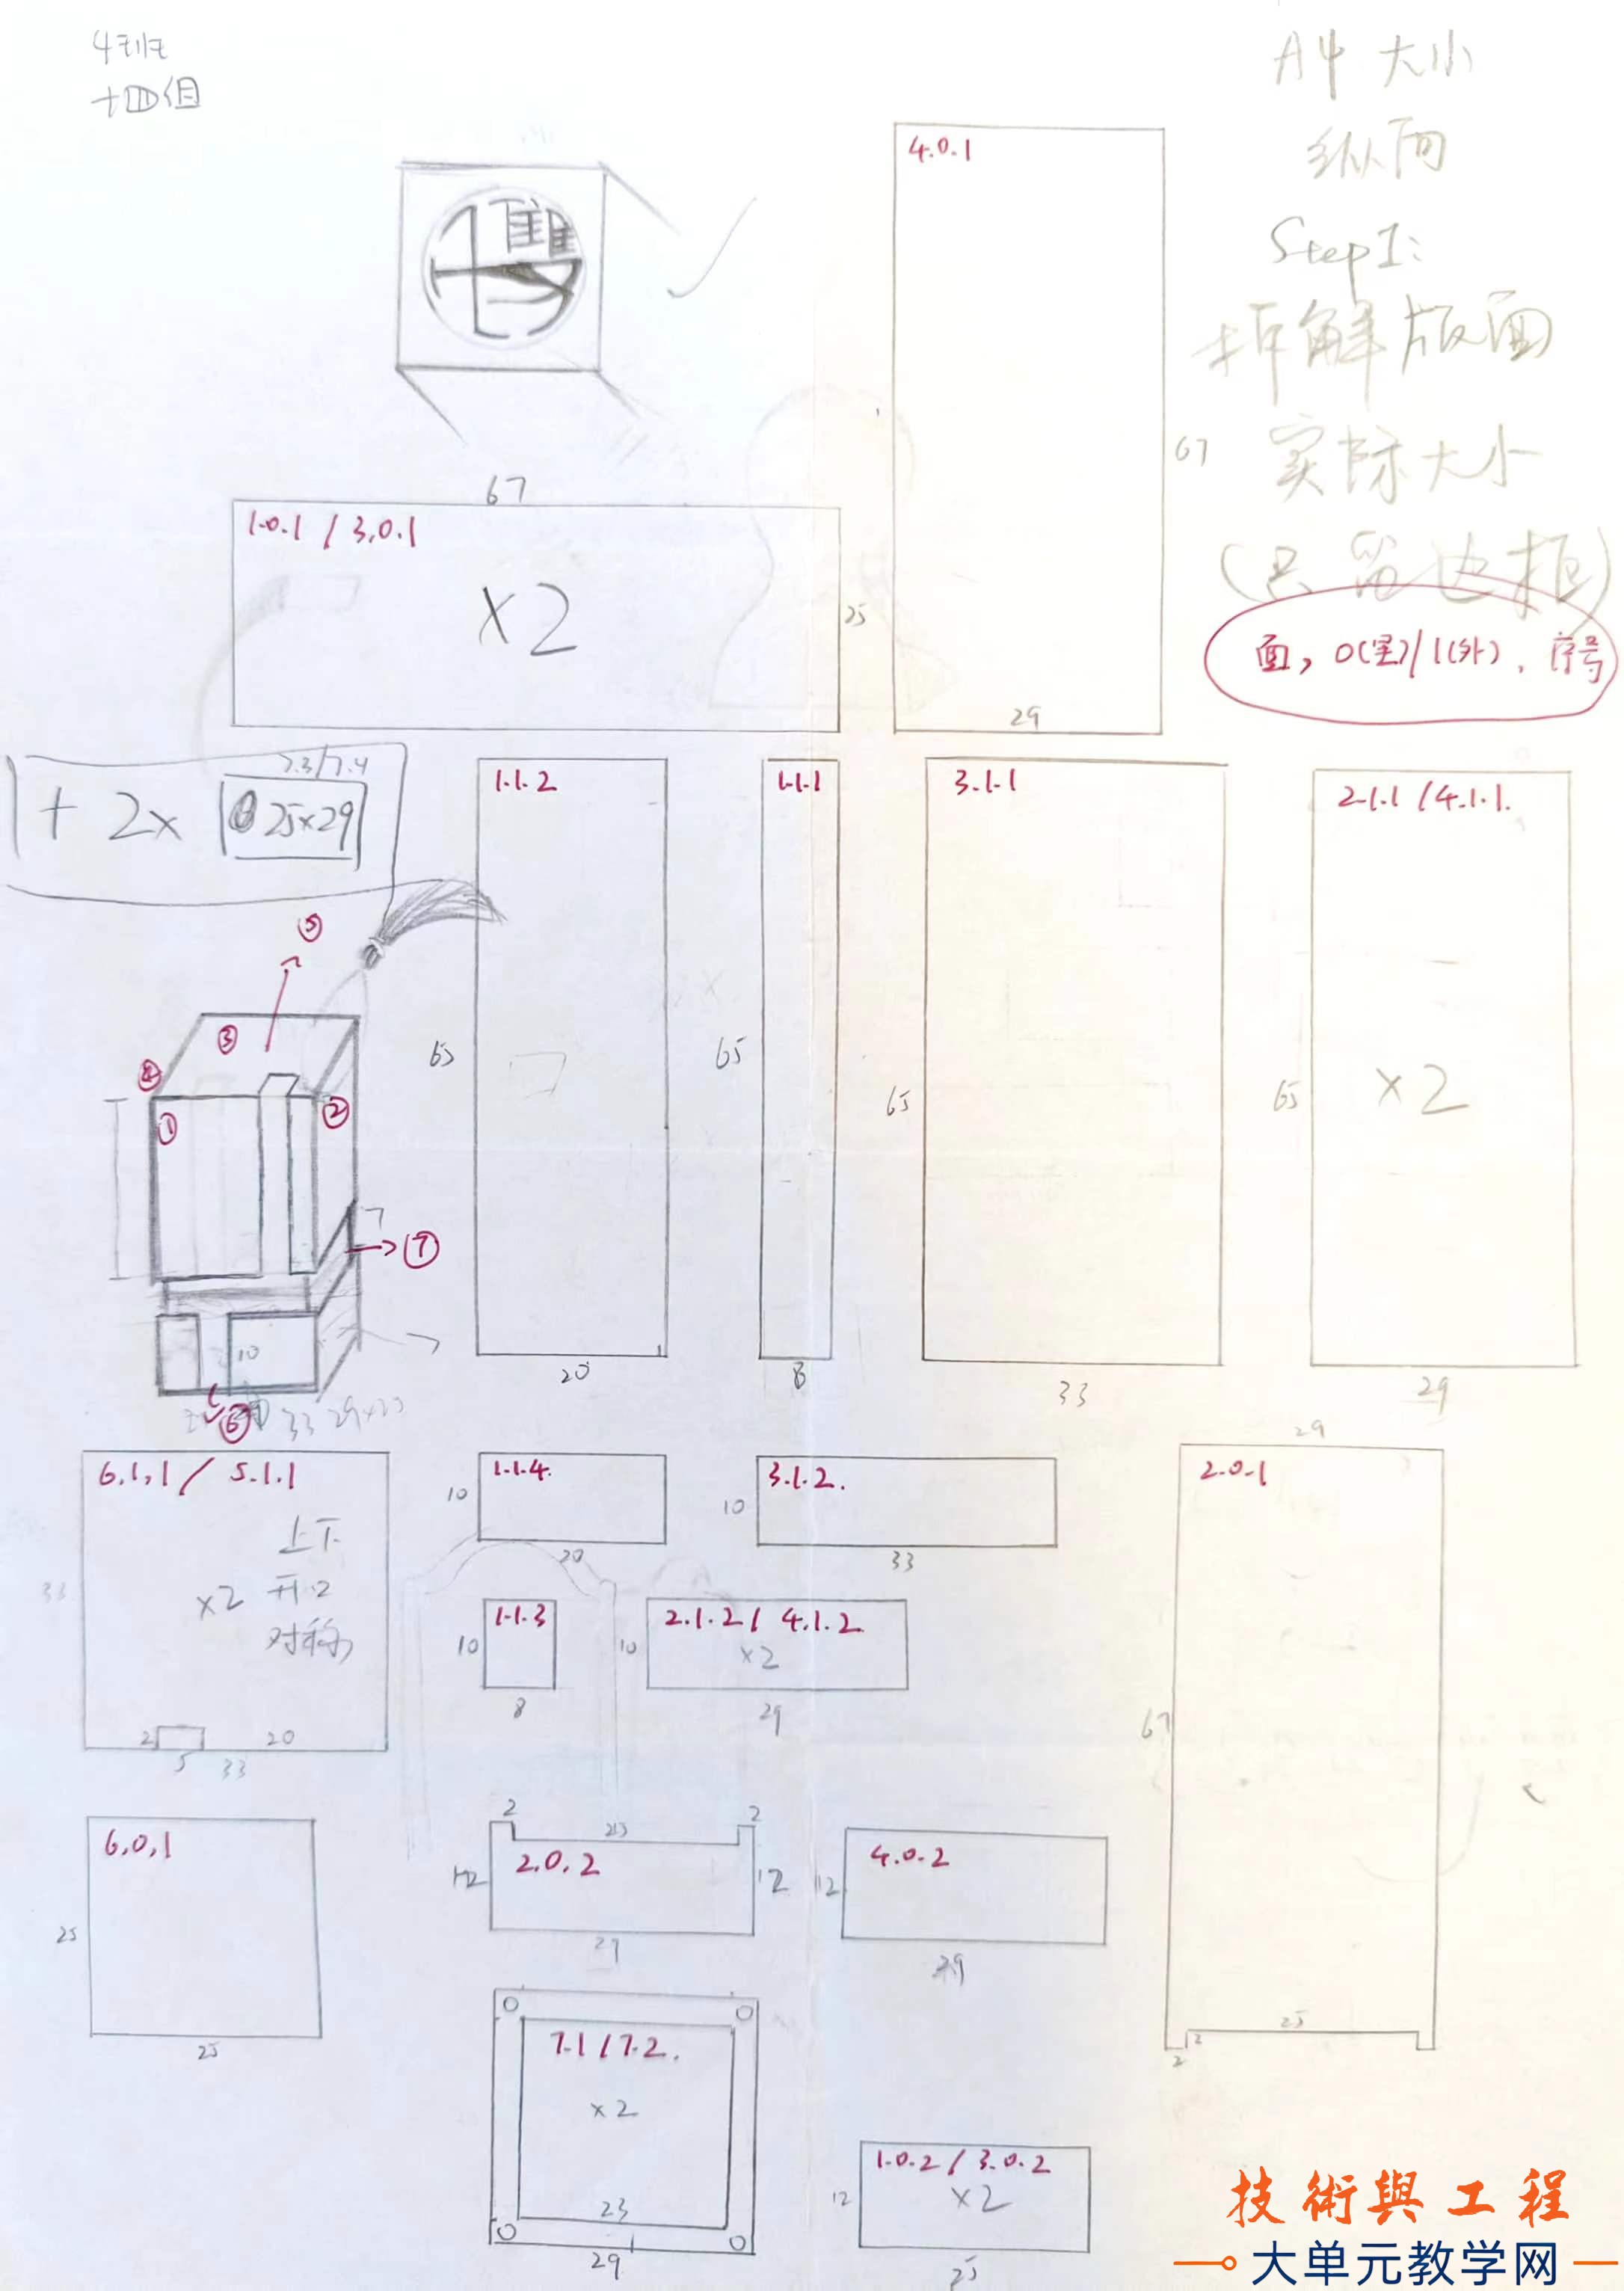 4班
十四组
A4 大小
纵向
Step1:
拆解版面
实际大小
(只留边框)
面, 0(里)/1(外), 序号
4.0.1
67
29
67
1.0.1 / 3.0.1
×2
25
7.3/7.4
1 + 2× 25×29
1.1.2
65
20
1.1.1
65
8
3.1.1
65
33
2.1.1 / 4.1.1.
65
×2
29
⑤
③
④
①
②
⑦
10
⑥
33 29×33
6.1.1 / 5.1.1
上下
×2 开口
对称
33
2
20
5
33
1.1.4.
10
20
3.1.2.
10
33
29
2.0.1
67
25
2
2
1.1.3
10
8
2.1.2 / 4.1.2
10
×2
29
6.0.1
25
25
2
25
2
2.0.2
12
12
29
4.0.2
12
29
7.1 / 7.2.
×2
23
29
1.0.2 / 3.0.2
12
×2
25
技術與工程
大单元教学网